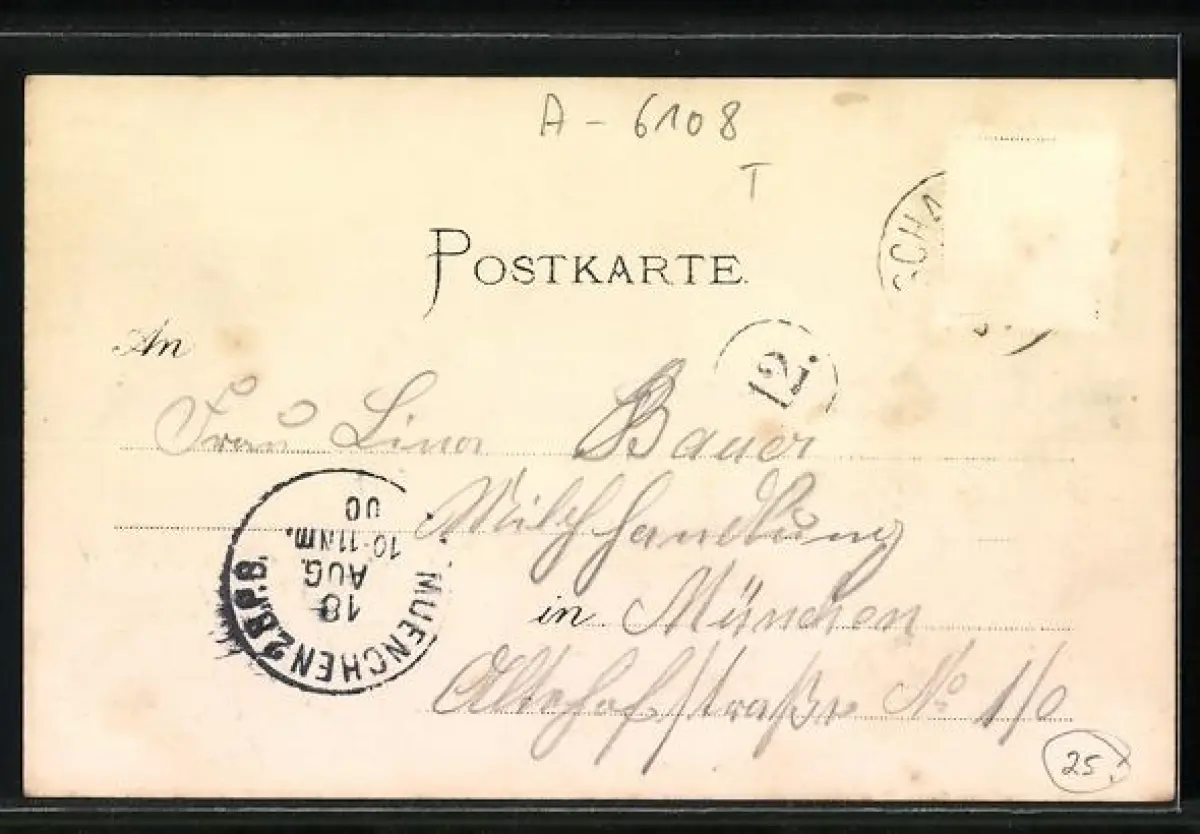 A - 6108
T
POSTKARTE.
SCHA
12.
An
Frau Lina Bauer
Milchhandlung
in München
Althofstraße No 1/0
MUENCHEN 2 B.P.B.
18
AUG.
10-11 Nm.
00
25